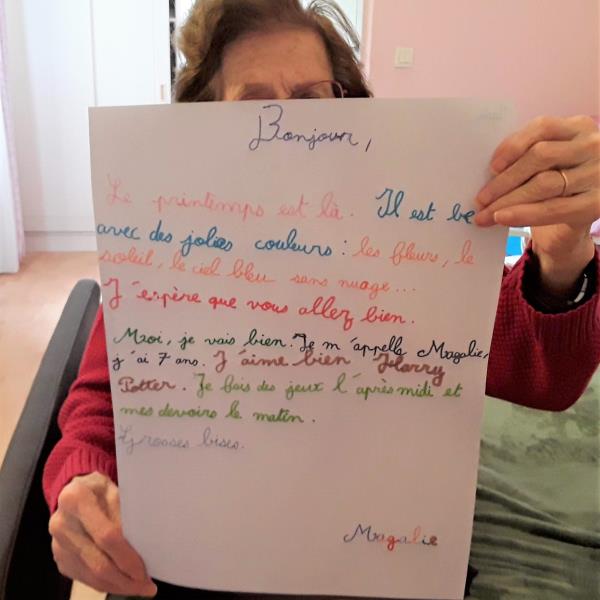 Bonjour,
Le printemps est là. Il est be
avec des jolies couleurs : les fleurs, le
soleil, le ciel bleu sans nuage...
J'espère que vous allez bien.
Moi, je vais bien. Je m'appelle Magalie,
j'ai 7 ans. J'aime bien Harry
Potter. Je fais des jeux l'après midi et
mes devoirs le matin.
Grosses bises.
Magalie